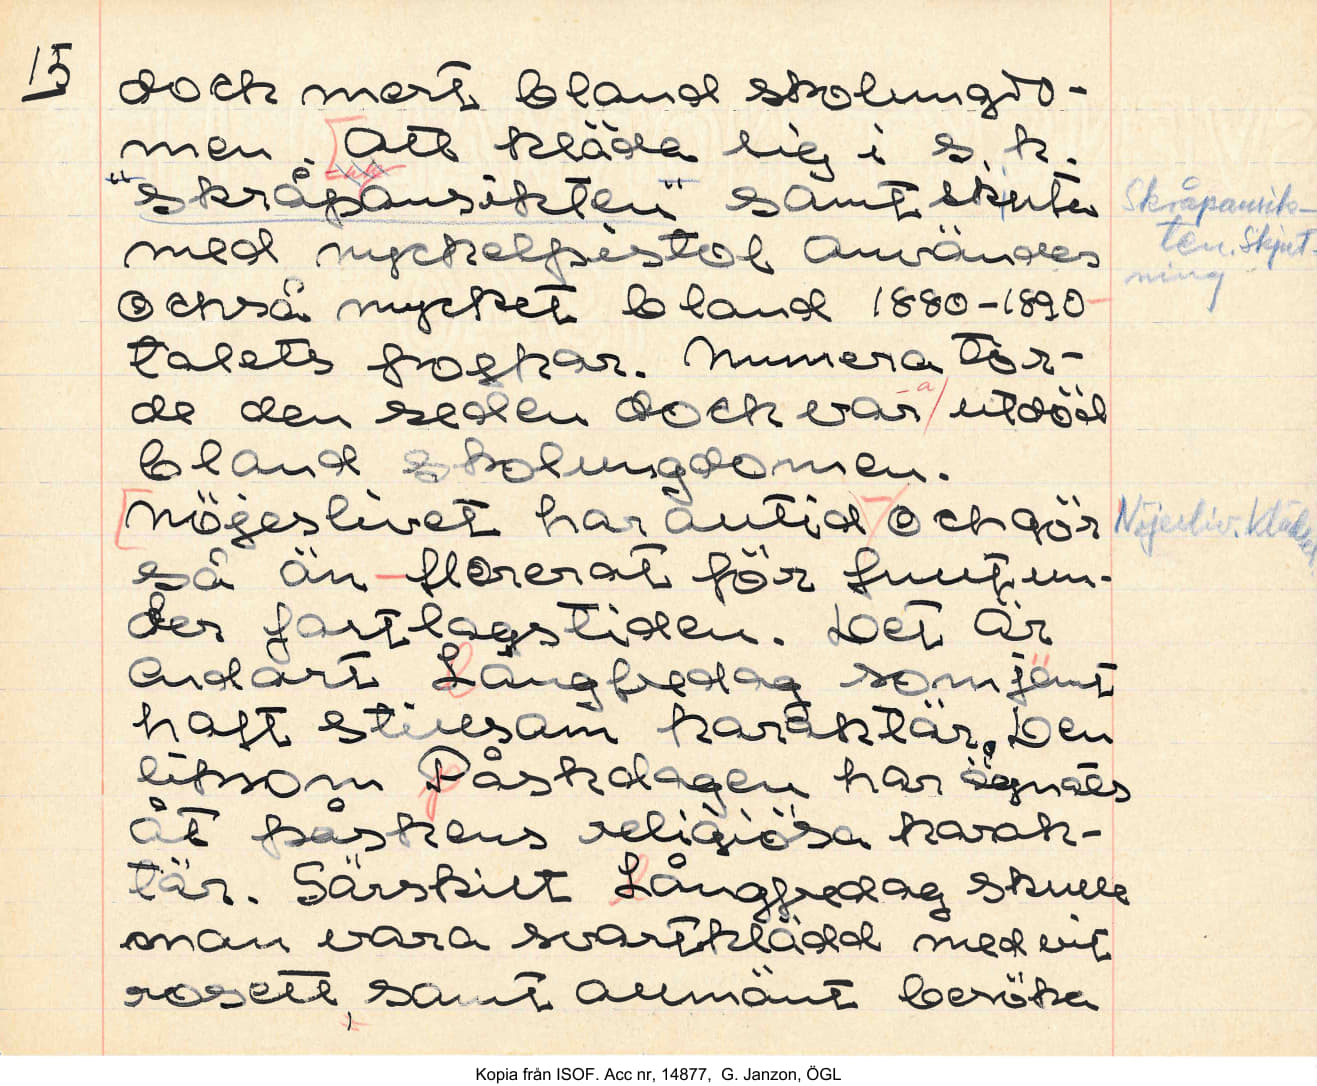 15
dock mest bland skolungdo-
men. Att kläda sig i s.k.
"skråpansikten" samt skjuta
med nyckelpistol användes
också mycket bland 1880-1890-
talets pojkar. Numera tor-
de den seden dock vara utdöd
bland skolungdomen.
Skråpansik-
ten. Skjut-
ning
Nöjeslivet har alltid och gör
så än florerat för fullt un-
der fastlagstiden. Det är
Nöjesliv.
endast Långfredag som jämt
haft stillsam karaktär. Den
liksom Påskdagen har ägnats
åt påskens religiösa karak-
tär. Särskilt Långfredag skulle
man vara svartklädd med vit
rosett, samt allmänt besöka
Kopia från ISOF. Acc nr, 14877, G. Janzon, ÖGL